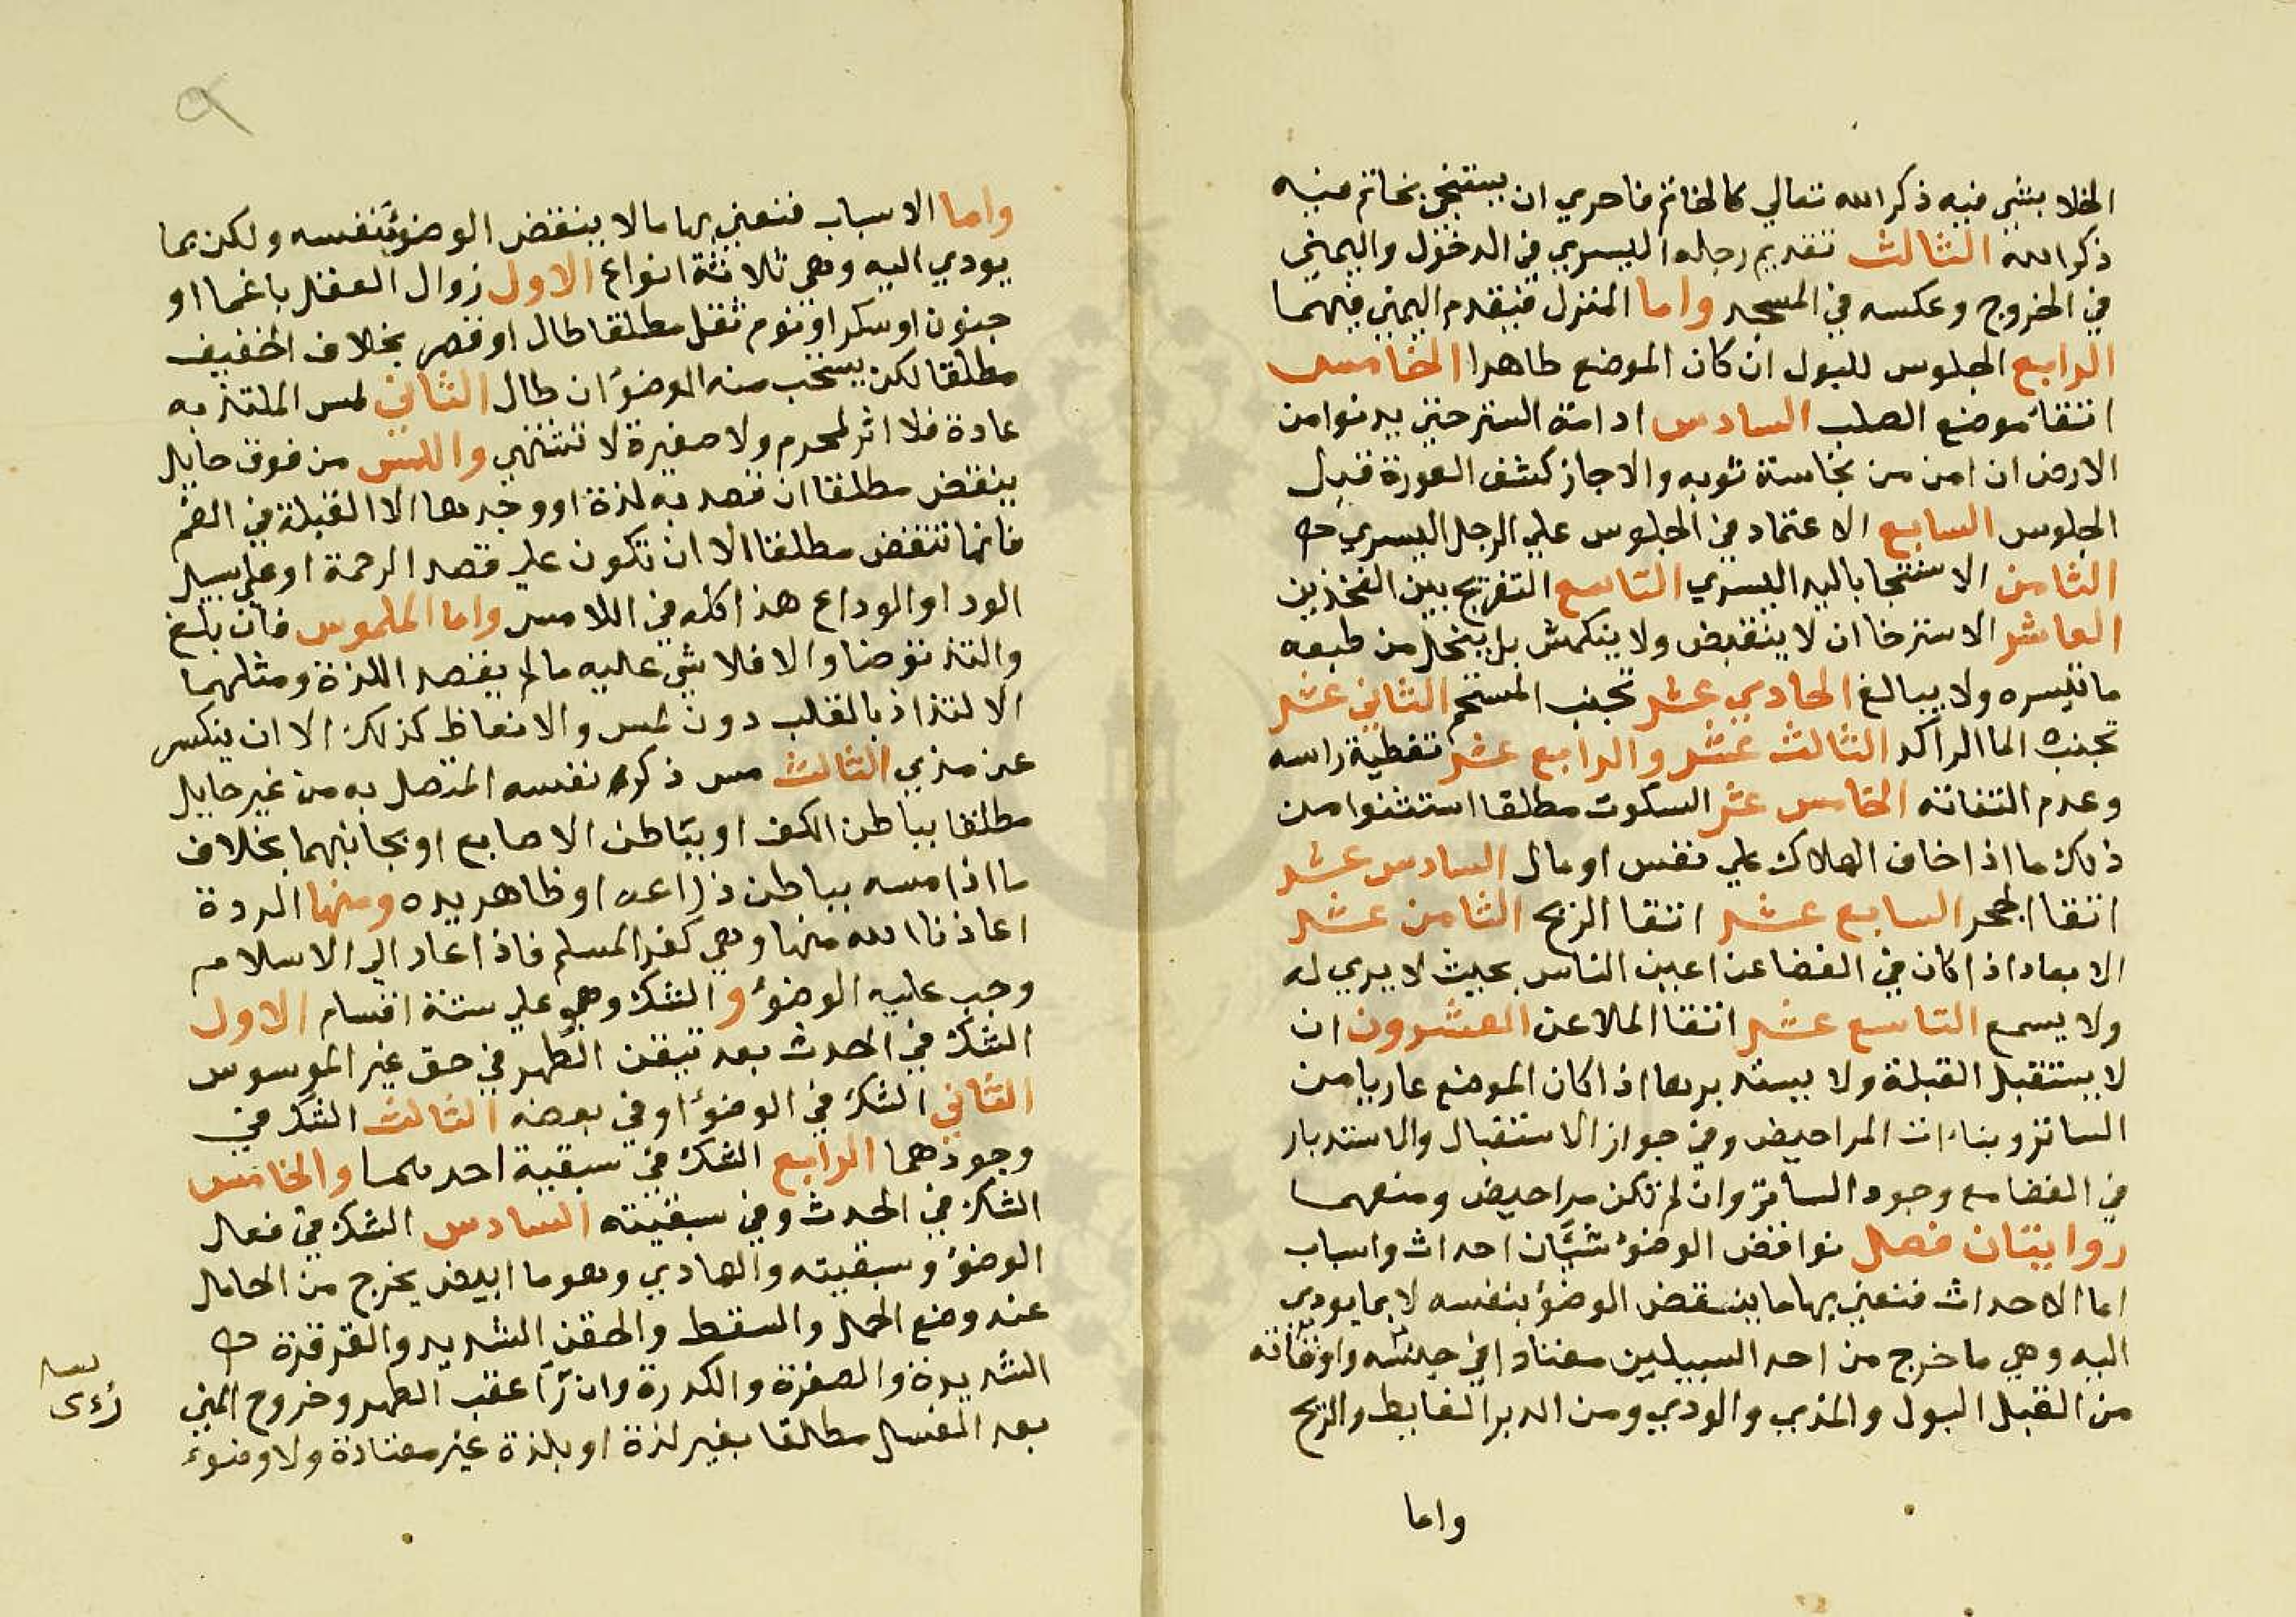 الخلا بشي فيه ذكر الله تعالي كالخاتم فاحري ان يستنجي بخاتم فيه
ذكر الله الثالث تقديم رجله اليسري في الدخول واليمني
في الخروج وعكسه في المسجد واما المنزل فيقدم اليمني فيهما
الرابع الجلوس للبول ان كان الموضع طاهرا الخامس
اتقاء موضع الصلب السادس ادامة الستر حتي يدنوا من
الارض ان امن من نجاسة ثوبه والا جاز كشف العورة قبل
الجلوس السابع الاعتماد في الجلوس علي الرجل اليسري
الثامن الاستنجا باليد اليسري التاسع التفريج بين الفخذين
العاشر الاسترخا ان لا ينقبض ولا ينكمش بل ينحل من طبعه
ما تيسره ولا يبالغ الحادي عشر تجنب المستحم الثاني عشر
تجنبه الما الراكد الثالث عشر والرابع عشر تغطية راسه
وعدم التفاته الخامس عشر السكوت مطلقا استثنوا من
ذلك ما اذا خاف الهلاك علي نفس او مال السادس عشر
اتقا الجحر السابع عشر اتقا الريح الثامن عشر
الابعاد اذا كان في الفضا عن اعين الناس بحيث لا يري له
ولا يسمع التاسع عشر اتقا الملاعن العشرون ان
لا يستقبل القبلة ولا يستدبرها اذا كان الموضع عاريا من
الساتر وبناءات المراحيض وفي جواز الاستقبال والاستدبار
في الفضا مع وجود الساتر وان لم تكن مراحيض ومنعهما
روايتان فصل نواقض الوضوء شيئان احداث واسباب
اما الاحداث فنعني بها ما ينقض الوضوء بنفسه لا بما يودي
اليه وهي ما خرج من احد السبيلين معتادا في جنسه واوقاته
من القبل البول والمذي والودي ومن الدبر الغايط والريح
واما
واما الاسباب فنعني بها ما لا ينقض الوضوء بنفسه ولكن بما
يودي اليه وهي ثلاثة انواع الاول زوال العقل باغما او
جنون او سكر او نوم ثقل مطلقا طال او قصر بخلاف الخفيف
مطلقا لكن يستحب منه الوضوء ان طال الثاني لمس الملتذ به
عادة فلا اثر لمحرم ولا صغيرة لا تشتهي واللمس من فوق حايل
ينقض مطلقا ان قصد به لذة او وجدها الا القبلة في الفم
فانها تنقض مطلقا الا ان تكون علي قصد الرحمة او علي سبيل
الود او الوداع هذا كله في اللامس واما الملموس فان بلغ
والتذ توضا والا فلا شي عليه ما لم يقصد اللذة ومثلهما
الالتذاذ بالقلب دون لمس والانعاظ كذلك الا ان ينكسر
عن مذي الثالث مس ذكر نفسه المتصل به من غير حايل
مطلقا بباطن الكف او بباطن الاصابع او بجانبهما بخلاف
ما اذا مسه بباطن ذراعه او ظاهر يده ومنها الردة
اعاذنا الله منها وهي كفر المسلم فاذا عاد الي الاسلام
وجب عليه الوضوء والشك وهو علي ستة اقسام الاول
الشك في الحدث بعد تيقن الطهر في حق غير الموسوس
الثاني الشك في الوضوء او في بعضه الثالث الشك في
وجودهما الرابع الشك في سبقية احدهما والخامس
الشك في الحدث وفي سبقيته السادس الشك في فعل
الوضوء وسبقيته والهادي وهو ما ابيض يخرج من الحامل
عند وضع الحمل والسقط والحقن الشديد والقرقرة
الشديدة والصفرة والكدرة وان ترا عقب الطهر وخروج المني
بعد الغسل مطلقا بغير لذة او بلذة غير معتادة ولا وضوء